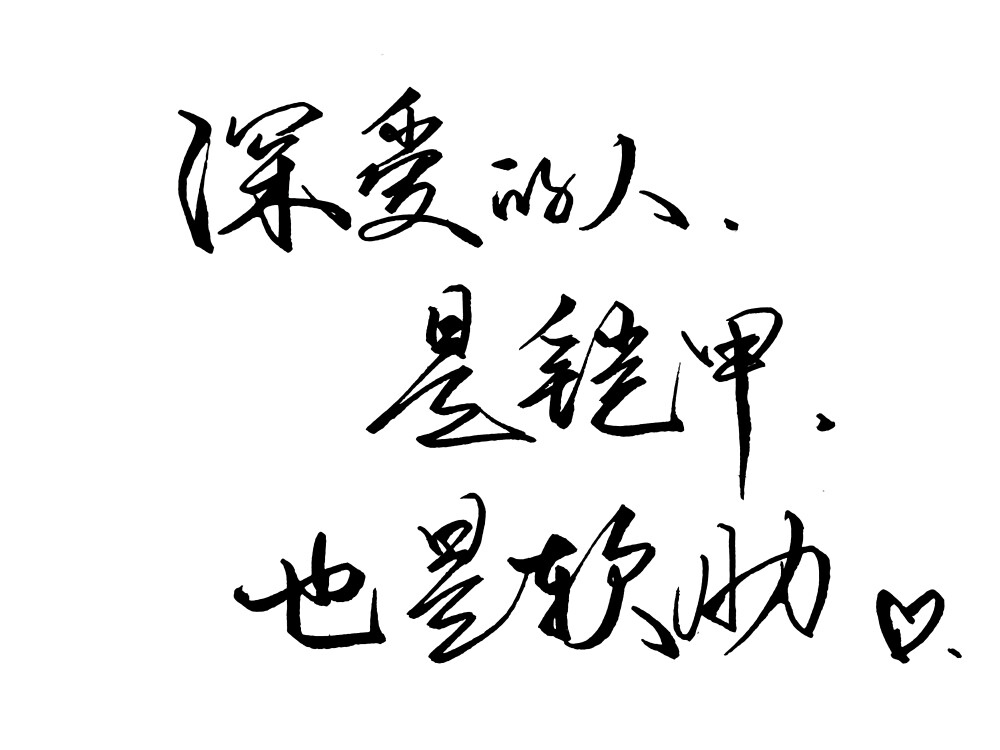 深爱的人.
是铠甲、
也是软肋♡.